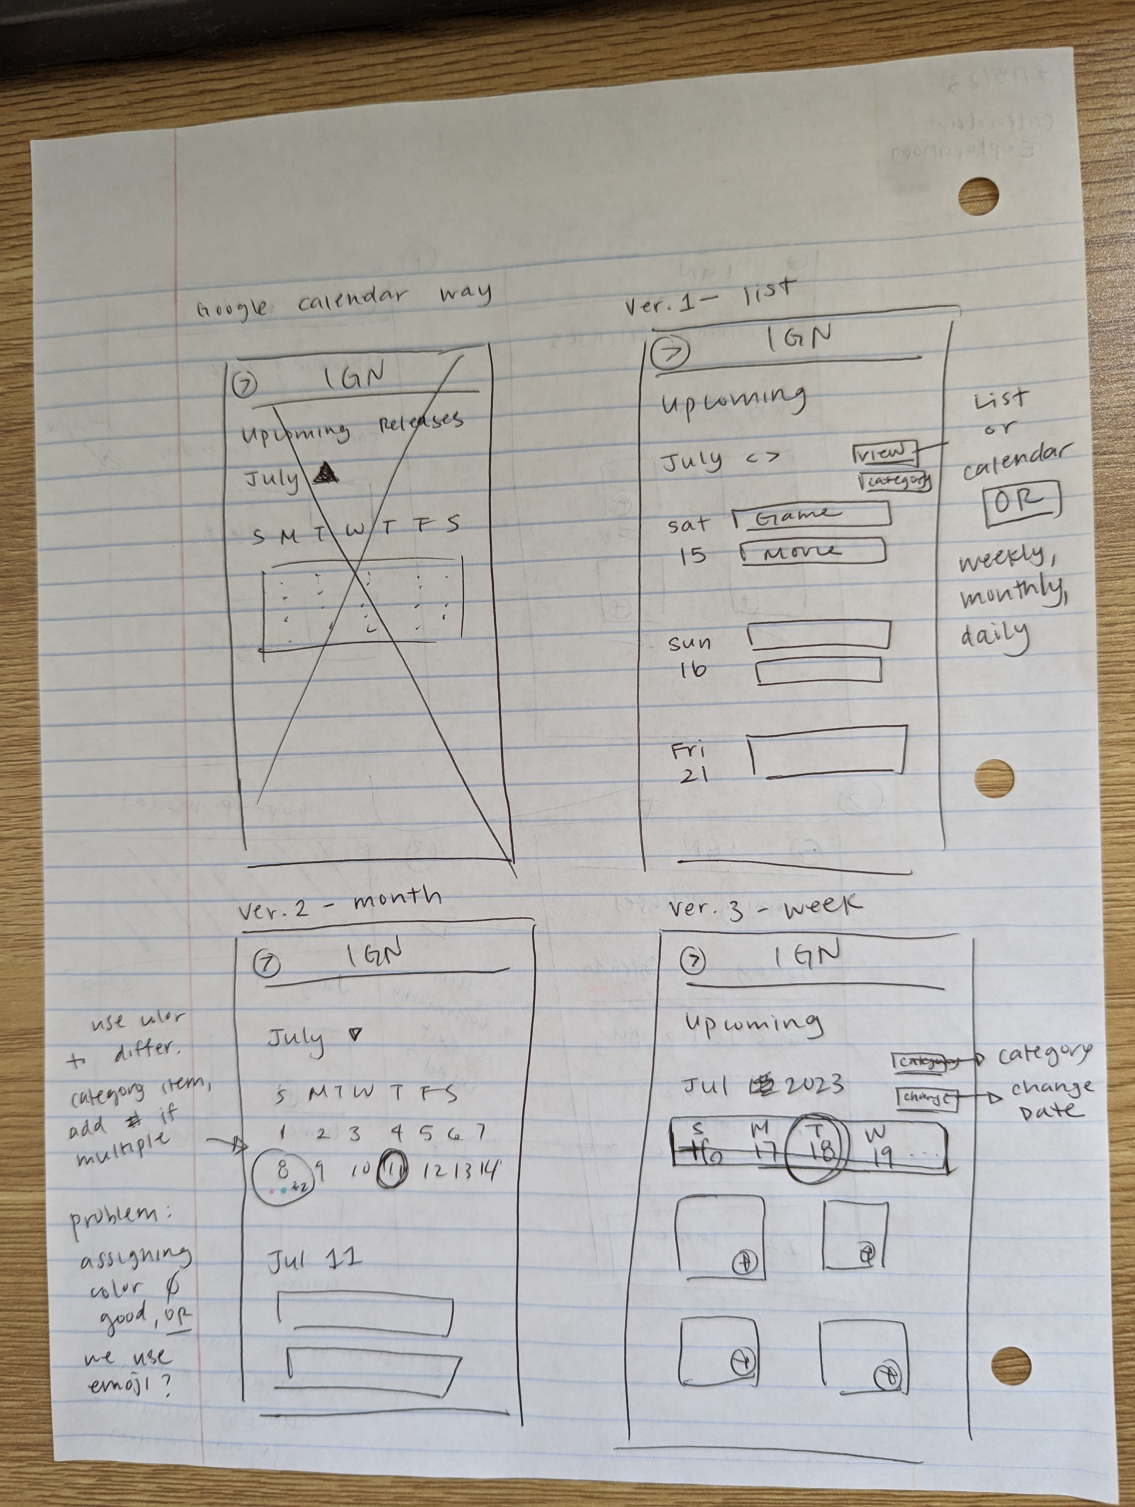 Google calendar way
IGN
Upcoming Releases
July
S M T W T F S
Ver. 1 - list
IGN
Upcoming
July < >
view
category
sat
15
Game
Movie
sun
16
Fri
21
List
or
calendar
OR
weekly,
monthly,
daily
Ver. 2 - month
IGN
July
S M T W T F S
1 2 3 4 5 6 7
8 9 10 11 12 13 14
+2
Jul 11
use color
to differ.
category item,
add # if
multiple
problem:
assigning
color ∅
good, OR
we use
emoji?
Ver. 3 - week
IGN
Upcoming
Jul 2023
category
change
category
change
date
S M T W
16 17 18 19 ...